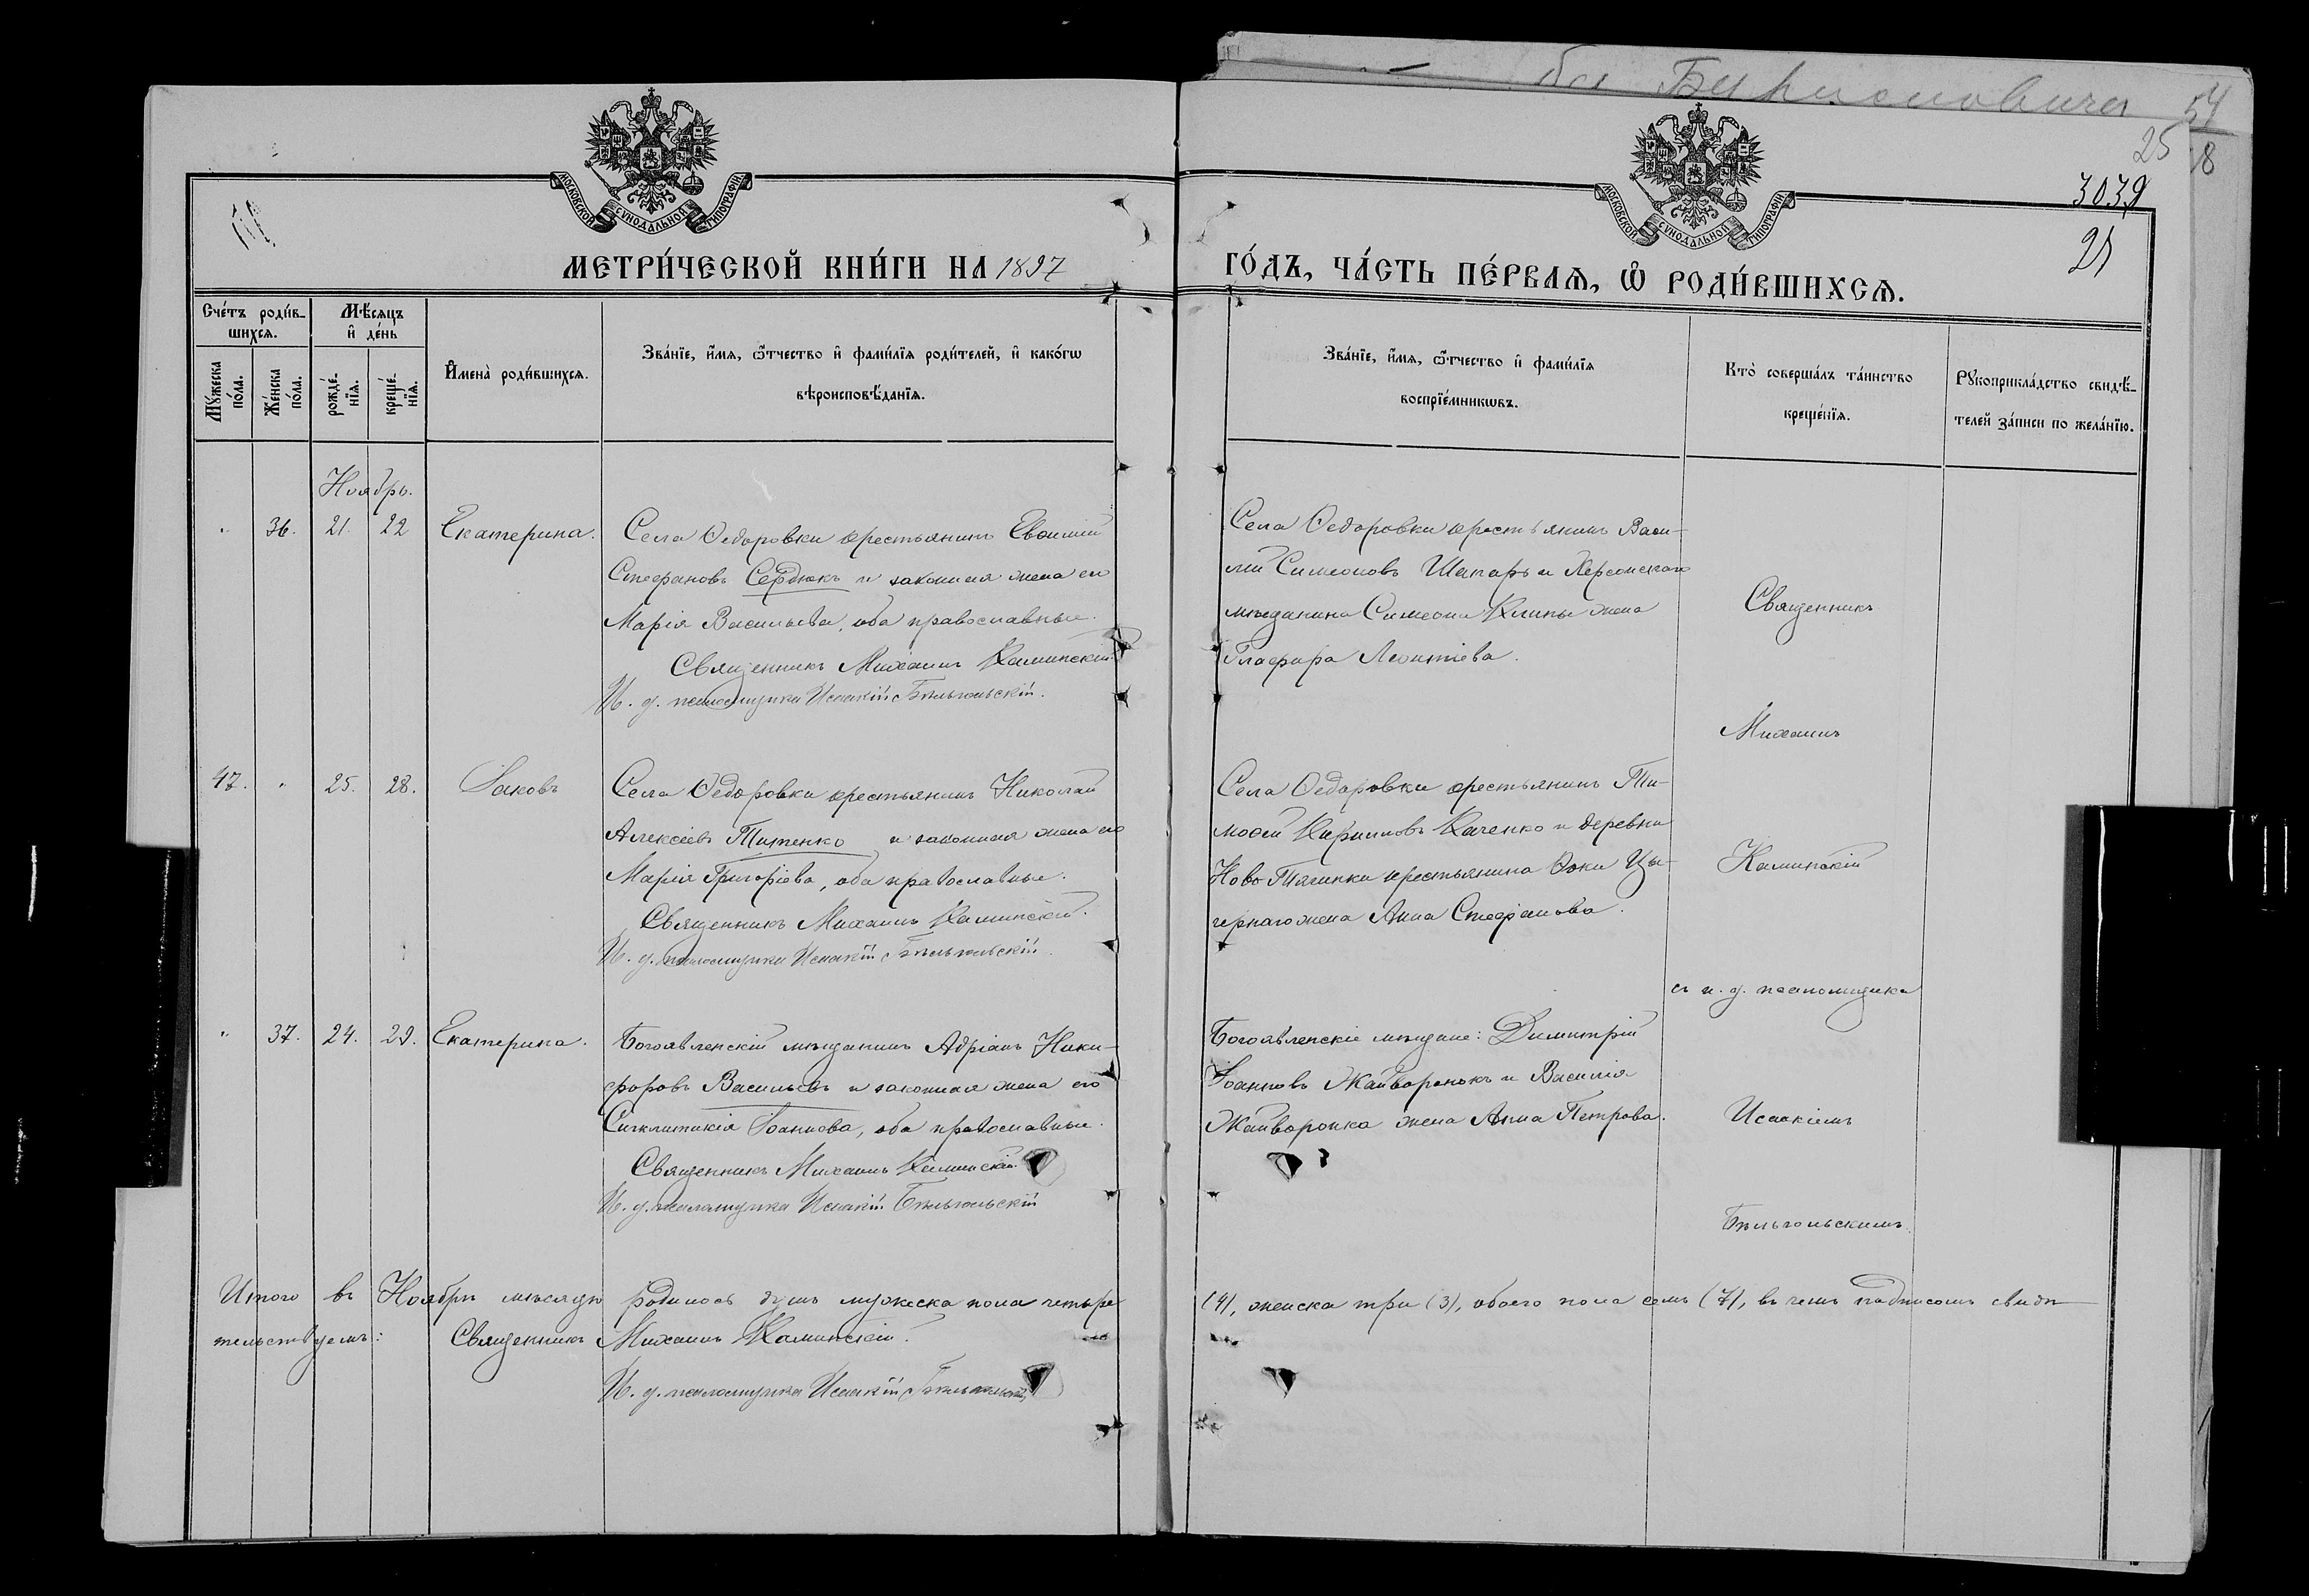 ба Бирюковича 54
25 18
3039
21
МОСКОВСКОЙ СУНОДАЛЬНОЙ ТИПОГРАФІИ
МОСКОВСКОЙ СУНОДАЛЬНОЙ ТИПОГРАФІИ
МЕТРИ́ЧЕСКОЙ КНИ́ГИ НА 1897
ГО́ДЪ, ЧА́СТЬ ПЕ́РВАѦ, Ѡ҆ РОДИ́ВШИХСѦ.
Сче́тъ роди́в-
шихсѧ.
Мѣ́сѧцъ
и҆ де́нь
Мꙋ́жеска по́ла.
Же́нска по́ла.
рожде́-
нїѧ.
креще́-
нїѧ.
И҆мена̀ роди́вшихсѧ.
Зва́нїе, и҆́мѧ, ѻ҆́тчество и҆ фами́лїѧ роди́телей, и҆ како́гѡ
вѣроисповѣ́данїѧ.
Зва́нїе, и҆́мѧ, ѻ҆́тчество и҆ фами́лїѧ
воспрїе́мникѡвъ.
Кто̀ соверша́лъ та́инство
креще́нїѧ.
Рꙋкоприкла́дство свидѣ́-
телей за́писи по жела́нїю.
Ноябрь.
" 36. 21. 22 Екатерина.
Села Ѳедоровки крестьянинъ Евѳимій
Стефановъ Сердюкъ и законная жена его
Марія Васильева, оба православные.
Священникъ Михаилъ Каминскій.
И. д. псаломщика Исаакій Бѣльгольскій.
Села Ѳедоровки крестьянинъ Васи-
лій Симеоновъ Шапарь и Херсонскаго
мѣщанина Симеона Клины жена
Глафира Леонтіева.
47. " 25. 28. Іаковъ
Села Ѳедоровки крестьянинъ Николай
Алексѣевъ Титенко и законная жена его
Марія Григоріева, оба православные.
Священникъ Михаилъ Каминскій.
И. д. псаломщика Исаакій Бѣльгольскій.
Села Ѳедоровки крестьянинъ Ти-
моѳей Кирилловъ Каченко и деревни
Ново Тягинки крестьянина Ѳоки Цы-
гернаго жена Анна Стефанова.
" 37. 24. 29. Екатерина.
Богоявленскій мѣщанинъ Адріанъ Ники-
форовъ Васильевъ и законная жена его
Синклитикія Іоаннова, оба православные.
Священникъ Михаилъ Каминскій
И. д. псаломщика Исаакій Бѣльгольскій
Богоявленскіе мѣщане: Димитрій
Іоанновъ Жайворонокъ и Василія
Жайворонка жена Анна Петрова.
Священникъ
Михаилъ
Каминскій
съ и. д. псаломщика
Исаакіемъ
Бѣльгольскимъ.
Итого въ Ноябрѣ мѣсяцѣ родилось душъ мужеска пола четыре
(4), женска три (3), обоего пола семь (7), въ чемъ подписомъ свидѣ-
тельствуемъ: Священникъ Михаилъ Каминскій.
И. д. псаломщика Исаакій Бѣльгольскій